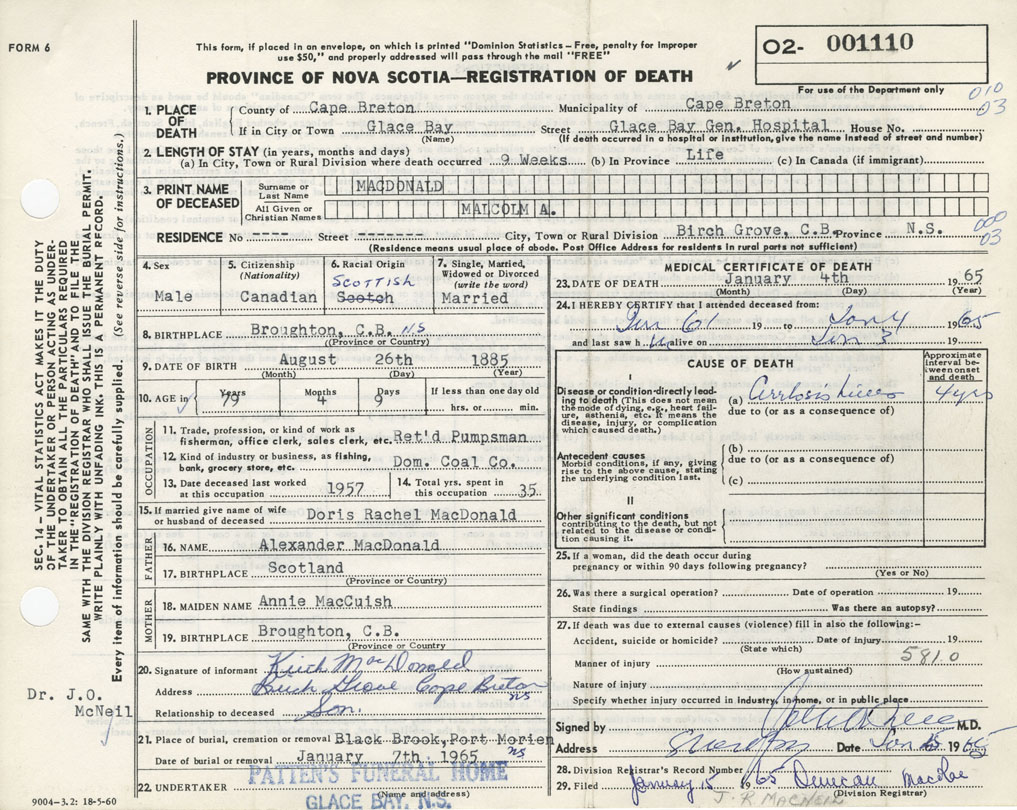 FORM 6
This form, if placed in an envelope, on which is printed "Dominion Statistics – Free, penalty for improper
use $50," and properly addressed will pass through the mail "FREE"
PROVINCE OF NOVA SCOTIA—REGISTRATION OF DEATH
O2- 001110
For use of the Department only
010
03
1. PLACE OF DEATH
County of Cape Breton Municipality of Cape Breton
If in City or Town Glace Bay Street Glace Bay Gen. Hospital House No.
(Name) (If death occurred in a hospital or institution, give the name instead of street and number)
2. LENGTH OF STAY (in years, months and days)
(a) In City, Town or Rural Division where death occurred 9 Weeks (b) In Province Life (c) In Canada (if immigrant)
3. PRINT NAME OF DECEASED
Surname or Last Name MACDONALD
All Given or Christian Names MALCOLM A.
RESIDENCE No ---- Street -------- City, Town or Rural Division Birch Grove, C.B. Province N.S.
000
03
(Residence means usual place of abode. Post Office Address for residents in rural parts not sufficient)
4. Sex
Male
5. Citizenship (Nationality)
Canadian
6. Racial Origin
SCOTTISH
Scotch
7. Single, Married, Widowed or Divorced (write the word)
Married
8. BIRTHPLACE Broughton, C.B. NS
(Province or Country)
9. DATE OF BIRTH August 26th 1885
(Month) (Day) (Year)
10. AGE in Years 79 Months 4 Days 9 If less than one day old
hrs. or min.
OCCUPATION
11. Trade, profession, or kind of work as
fisherman, office clerk, sales clerk, etc. Ret'd Pumpsman
12. Kind of industry or business, as fishing,
bank, grocery store, etc. Dom. Coal Co.
13. Date deceased last worked at this occupation 1957
14. Total yrs. spent in this occupation 35
15. If married give name of wife
or husband of deceased Doris Rachel MacDonald
FATHER
16. NAME Alexander MacDonald
17. BIRTHPLACE Scotland
(Province or Country)
MOTHER
18. MAIDEN NAME Annie MacCuish
19. BIRTHPLACE Broughton, C.B.
(Province or Country
20. Signature of informant Keith MacDonald
Address Birch Grove Cape Breton NS
Relationship to deceased Son.
21. Place of burial, cremation or removal Black Brook, Port Morien NS
Date of burial or removal January 7th, 1965
22. UNDERTAKER PATTEN'S FUNERAL HOME
(Name and address)
GLACE BAY, N.S.
MEDICAL CERTIFICATE OF DEATH
23. DATE OF DEATH January 4th 1965
(Month) (Day) (Year)
24. I HEREBY CERTIFY that I attended deceased from:
Jan 61 19 to Jan 4 1965
and last saw h im alive on Jan 3
CAUSE OF DEATH
Approximate interval between onset and death
I
Disease or condition directly leading to death (This does not mean the mode of dying, e.g., heart failure, asthenia, etc. It means the disease, injury, or complication which caused death.)
(a) 4 yrs
due to (or as a consequence of)
Antecedent causes
Morbid conditions, if any, giving rise to the above cause, stating the underlying condition last.
(b)
due to (or as a consequence of)
(c)
II
Other significant conditions
contributing to the death, but not related to the disease or condition causing it.
25. If a woman, did the death occur during
pregnancy or within 90 days following pregnancy?
(Yes or No)
26. Was there a surgical operation? Date of operation 19
State findings Was there an autopsy?
27. If death was due to external causes (violence) fill in also the following:-
Accident, suicide or homicide? Date of injury 19
(State which)
581.0
Manner of injury
(How sustained)
Nature of injury
Specify whether injury occurred in industry, in home, or in public place
Signed by M.D.
Address Date Jan 1965
28. Division Registrar's Record Number
29. Filed January 15 1965 Duncan
J. R MACNEIL (Division Registrar)
SEC. 14 – VITAL STATISTICS ACT MAKES IT THE DUTY
OF THE UNDERTAKER OR PERSON ACTING AS UNDER-
TAKER TO OBTAIN ALL THE PARTICULARS REQUIRED
IN THE "REGISTRATION OF DEATH" AND TO FILE THE
SAME WITH THE DIVISION REGISTRAR WHO SHALL ISSUE THE BURIAL PERMIT.
WRITE PLAINLY WITH UNFADING INK. THIS IS A PERMANENT RECORD.
Every item of information should be carefully supplied. (See reverse side for instructions.)
Dr. J.O.
McNeil
9004-3.2: 18-5-60